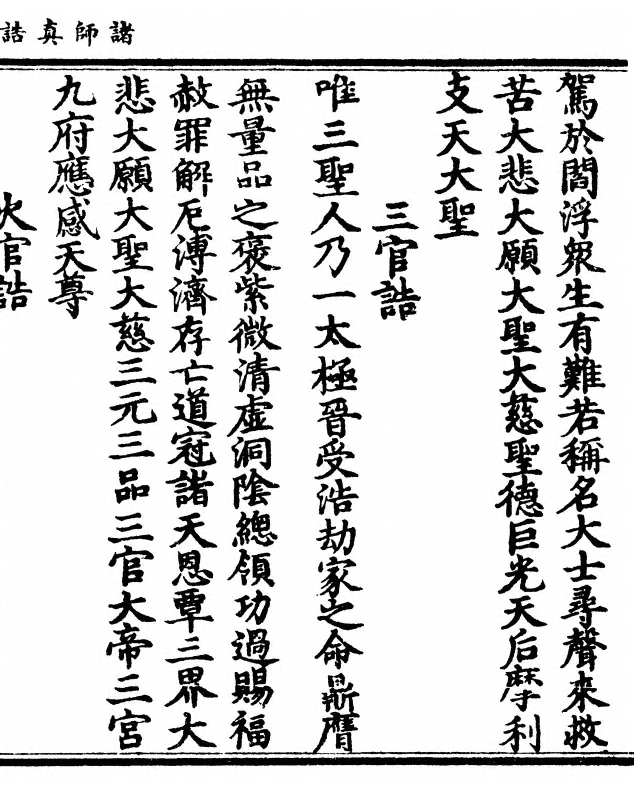 諸師真誥
駕於閻浮眾生有難若稱名大士尋聲來救
苦大悲大願大聖大慈聖德巨光天后摩利
支天大聖
三官誥
唯三聖人乃一太極晉受浩劫家之命鼎膺
無量品之褒紫微清虛洞陰總領功過賜福
赦罪解厄溥濟存亡道冠諸天恩覃三界大
悲大願大聖大慈三元三品三官大帝三宮
九府應感天尊
火官誥